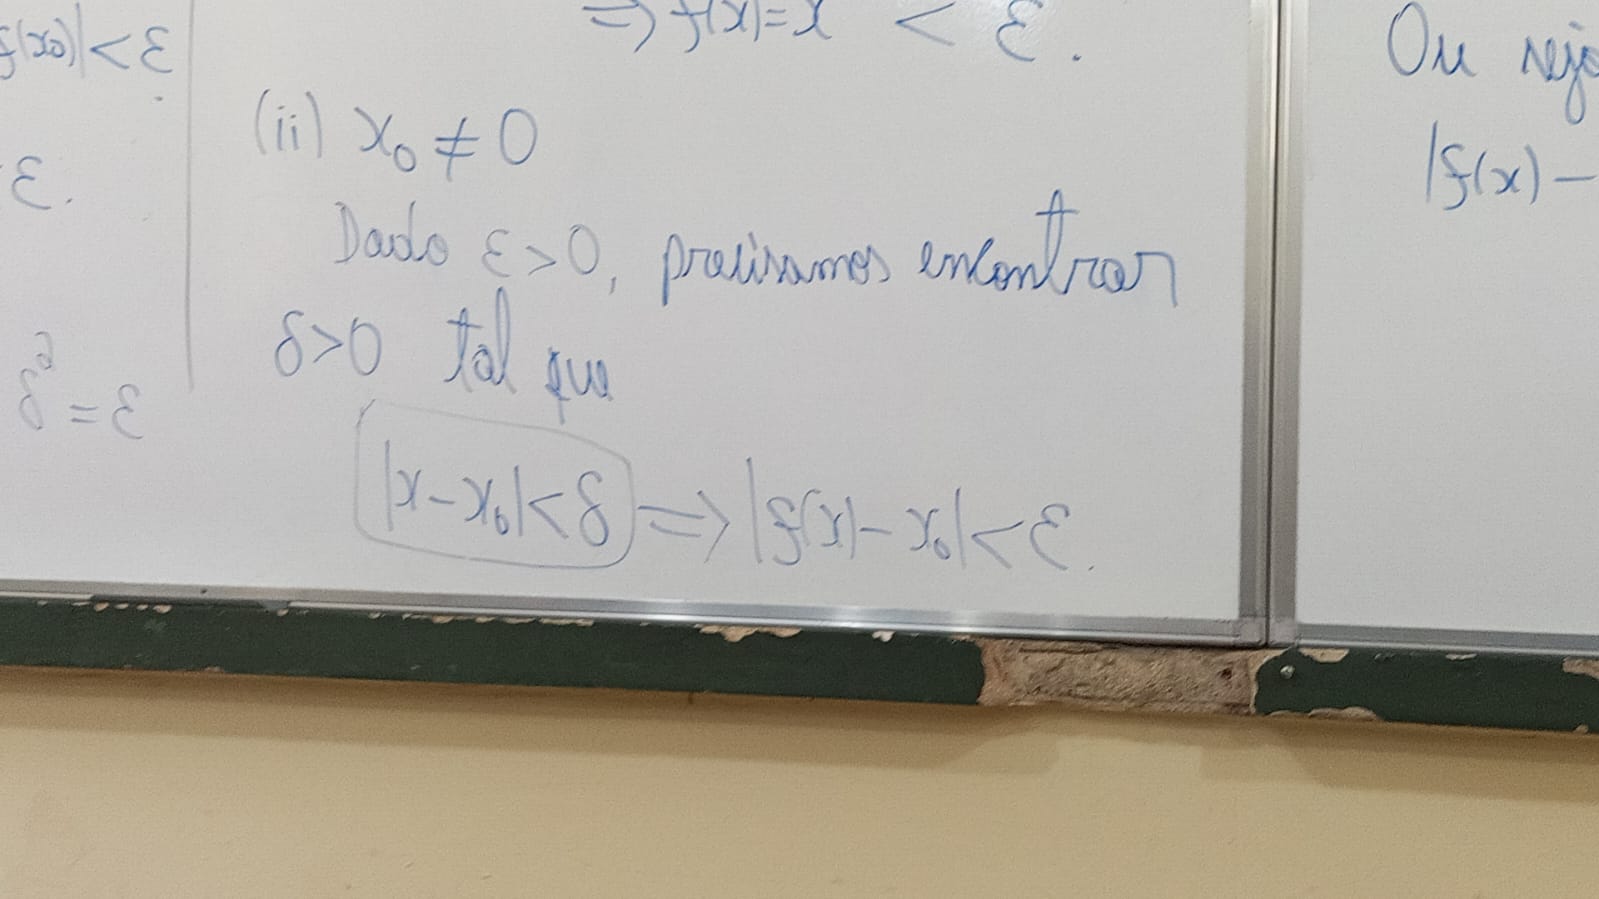 f(x₀)|<ε
ε.
δ²=ε
⇒ f(x)=x² < ε.
(ii) x₀ ≠ 0
Dado ε>0, precisamos encontrar
δ>0 tal que
|x-x₀|<δ ⇒ |f(x)-x₀|<ε.
Ou seja
|f(x)-